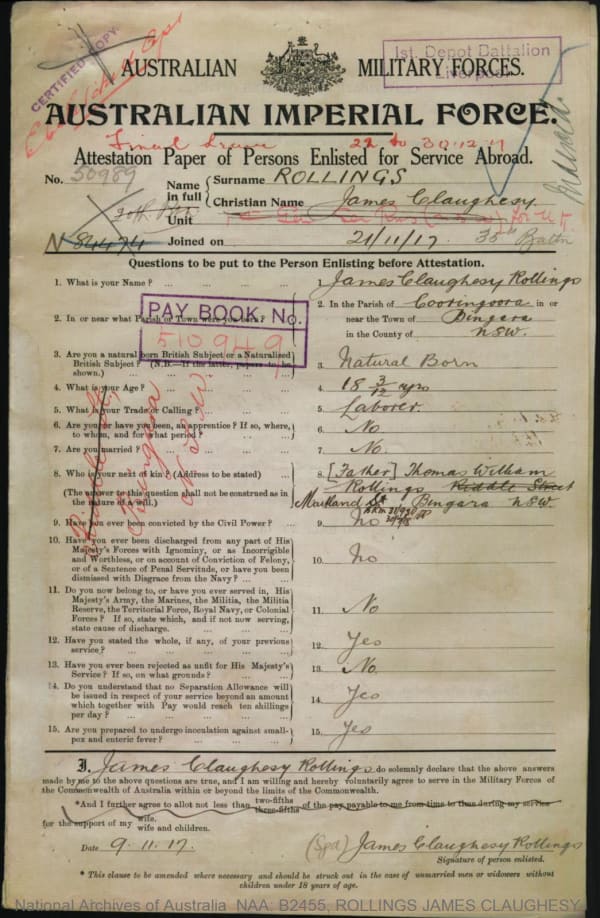 CERTIFIED COPY
1st. Depot Battalion
Liverpool
AUSTRALIAN MILITARY FORCES.
AUSTRALIAN IMPERIAL FORCE.
22 to 30.12.17
Attestation Paper of Persons Enlisted for Service Abroad.
No. 50989
Name in full { Surname ROLLINGS
Christian Name James Claughesy
Unit
N 84474 Joined on 21/11/17 35th Battn
Questions to be put to the Person Enlisting before Attestation.
1. What is your Name? ... 1. James Claughesy Rollings
2. In or near what Parish or Town were you born? ... 2. In the Parish of Cooringoora in or
near the Town of Bingara
in the County of NSW.
PAY BOOK No.
510949
3. Are you a natural born British Subject or a Naturalised
British Subject? (N.B.—If the latter, papers to be
shown.) ... 3. Natural Born
4. What is your Age? ... 4. 18 3/12 yrs
5. What is your Trade or Calling? ... 5. Laborer.
6. Are you, or have you been, an apprentice? If so, where,
to whom, and for what period? ... 6. No
7. Are you married? ... 7. No.
8. Who is your next of kin? (Address to be stated) ... 8. [Father] Thomas William
Rollings Riddle Street
(The answer to this question shall not be construed as in
the nature of a will.) Maitland St Bingara NSW.
Riddle St,
Bingara
N.S.W.
9. Have you ever been convicted by the Civil Power? ... 9. No
10. Have you ever been discharged from any part of His
Majesty's Forces with Ignominy, or as Incorrigible
and Worthless, or on account of Conviction of Felony,
or of a Sentence of Penal Servitude, or have you been
dismissed with Disgrace from the Navy? ... 10. No
11. Do you now belong to, or have you ever served in, His
Majesty's Army, the Marines, the Militia, the Militia
Reserve, the Territorial Force, Royal Navy, or Colonial
Forces? If so, state which, and if not now serving,
state cause of discharge. ... 11. No
12. Have you stated the whole, if any, of your previous
service? ... 12. Yes
13. Have you ever been rejected as unfit for His Majesty's
Service? If so, on what grounds? ... 13. No.
14. Do you understand that no Separation Allowance will
be issued in respect of your service beyond an amount
which together with Pay would reach ten shillings
per day? ... 14. Yes
15. Are you prepared to undergo inoculation against small-
pox and enteric fever? ... 15. Yes
I, James Claughesy Rollings do solemnly declare that the above answers
made by me to the above questions are true, and I am willing and hereby voluntarily agree to serve in the Military Forces of
the Commonwealth of Australia within or beyond the limits of the Commonwealth.
*And I further agree to allot not less than two-fifths three-fifths of the pay payable to me from time to time during my service
for the support of my wife. wife and children.
Date 9.11.17. (Sgd) James Claughesy Rollings
Signature of person enlisted.
* This clause to be amended where necessary and should be struck out in the case of unmarried men or widowers without
children under 18 years of age.
National Archives of Australia NAA: B2455, ROLLINGS JAMES CLAUGHESY